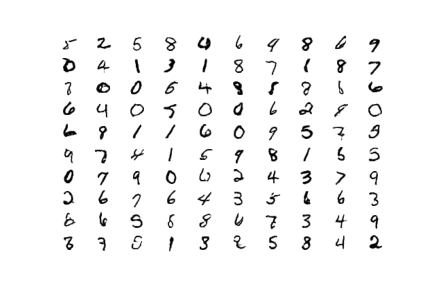 5 2 5 8 4 6 9 8 6 9
0 4 1 3 1 8 7 1 8 7
0 0 5 4 8 8 8 6 6
6 4 0 5 0 0 6 2 8 0
6 8 1 1 6 0 9 5 7 5
9 7 4 1 5 9 8 1 5 5
0 7 9 0 6 2 4 3 7 9
2 6 7 6 4 3 5 6 6 3
6 6 5 8 8 6 7 3 4 9
3 7 5 1 3 2 5 8 4 2